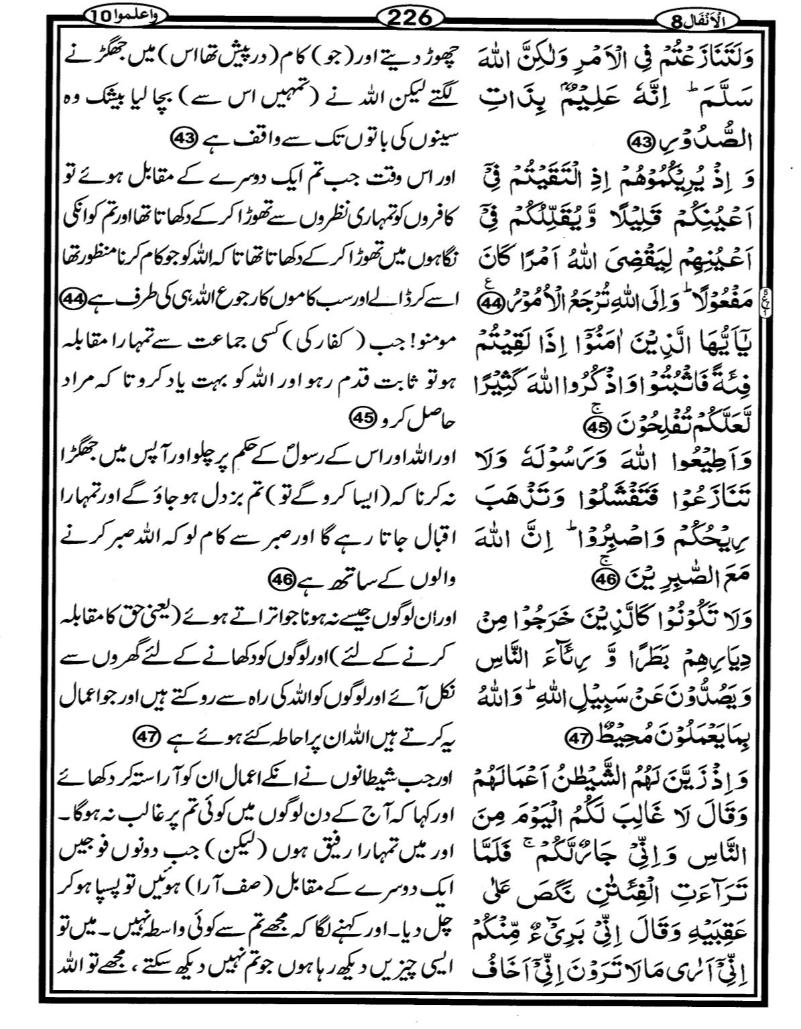 الانفال 8
226
واعلموا 10
وَلَتَنَازَعْتُمْ فِي الْاَمْرِ وَلٰكِنَّ اللّٰهَ
سَلَّمَ ؕ اِنَّهٗ عَلِيْمٌۢ بِذَاتِ
الصُّدُوْرِ 43
وَ اِذْ يُرِيْكُمُوْهُمْ اِذِ الْتَقَيْتُمْ فِيْۤ
اَعْيُنِكُمْ قَلِيْلًا وَّيُقَلِّلُكُمْ فِيْۤ
اَعْيُنِهِمْ لِيَقْضِيَ اللّٰهُ اَمْرًا كَانَ
مَفْعُوْلًا ؕ وَاِلَى اللّٰهِ تُرْجَعُ الْاُمُوْرُ 44
يٰۤاَيُّهَا الَّذِيْنَ اٰمَنُوْۤا اِذَا لَقِيْتُمْ
فِئَةً فَاثْبُتُوْا وَاذْكُرُوا اللّٰهَ كَثِيْرًا
لَّعَلَّكُمْ تُفْلِحُوْنَ 45
وَاَطِيْعُوا اللّٰهَ وَرَسُوْلَهٗ وَلَا
تَنَازَعُوْا فَتَفْشَلُوْا وَتَذْهَبَ
رِيْحُكُمْ وَاصْبِرُوْا ؕ اِنَّ اللّٰهَ
مَعَ الصّٰبِرِيْنَ 46
وَلَا تَكُوْنُوْا كَالَّذِيْنَ خَرَجُوْا مِنْ
دِيَارِهِمْ بَطَرًا وَّ رِئَآءَ النَّاسِ
وَيَصُدُّوْنَ عَنْ سَبِيْلِ اللّٰهِ ؕ وَاللّٰهُ
بِمَا يَعْمَلُوْنَ مُحِيْطٌ 47
وَاِذْ زَيَّنَ لَهُمُ الشَّيْطٰنُ اَعْمَالَهُمْ
وَقَالَ لَا غَالِبَ لَكُمُ الْيَوْمَ مِنَ
النَّاسِ وَاِنِّيْ جَارٌ لَّكُمْ ۚ فَلَمَّا
تَرَآءَتِ الْفِئَتٰنِ نَكَصَ عَلٰى
عَقِبَيْهِ وَقَالَ اِنِّيْ بَرِيْٓءٌ مِّنْكُمْ
اِنِّيْۤ اَرٰى مَا لَا تَرَوْنَ اِنِّيْۤ اَخَافُ
چھوڑ دیتے اور (جو) کام (درپیش تھا اس) میں جھگڑنے
لگتے لیکن اللہ نے (تمہیں اس سے) بچا لیا بیشک وہ
سینوں کی باتوں تک سے واقف ہے 43
اور اس وقت جب تم ایک دوسرے کے مقابل ہوئے تو
کافروں کو تمہاری نظروں سے تھوڑا کر کے دکھاتا تھا اور تم کو انکی
نگاہوں میں تھوڑا کر کے دکھاتا تھا تاکہ اللہ کو جو کام کرنا منظور تھا
اسے کر ڈالے اور سب کاموں کا رجوع اللہ ہی کی طرف ہے 44
مومنو! جب (کفار کی) کسی جماعت سے تمہارا مقابلہ
ہو تو ثابت قدم رہو اور اللہ کو بہت یاد کرو تا کہ مراد
حاصل کرو 45
اور اللہ اور اس کے رسولؐ کے حکم پر چلو اور آپس میں جھگڑا
نہ کرنا کہ (ایسا کرو گے تو) تم بزدل ہو جاؤ گے اور تمہارا
اقبال جاتا رہے گا اور صبر سے کام لو کہ اللہ صبر کرنے
والوں کے ساتھ ہے 46
اور ان لوگوں جیسے نہ ہونا جو اتراتے ہوئے (یعنی حق کا مقابلہ
کرنے کے لئے) اور لوگوں کو دکھانے کے لئے گھروں سے
نکل آئے اور لوگوں کو اللہ کی راہ سے روکتے ہیں اور جو اعمال
یہ کرتے ہیں اللہ ان پر احاطہ کئے ہوئے ہے 47
اور جب شیطانوں نے انکے اعمال ان کو آراستہ کر دکھائے
اور کہا کہ آج کے دن لوگوں میں کوئی تم پر غالب نہ ہوگا۔
اور میں تمہارا رفیق ہوں (لیکن) جب دونوں فوجیں
ایک دوسرے کے مقابل (صف آرا) ہوئیں تو پسپا ہو کر
چل دیا۔ اور کہنے لگا کہ مجھے تم سے کوئی واسطہ نہیں۔ میں تو
ایسی چیزیں دیکھ رہا ہوں جو تم نہیں دیکھ سکتے ، مجھے تو اللہ